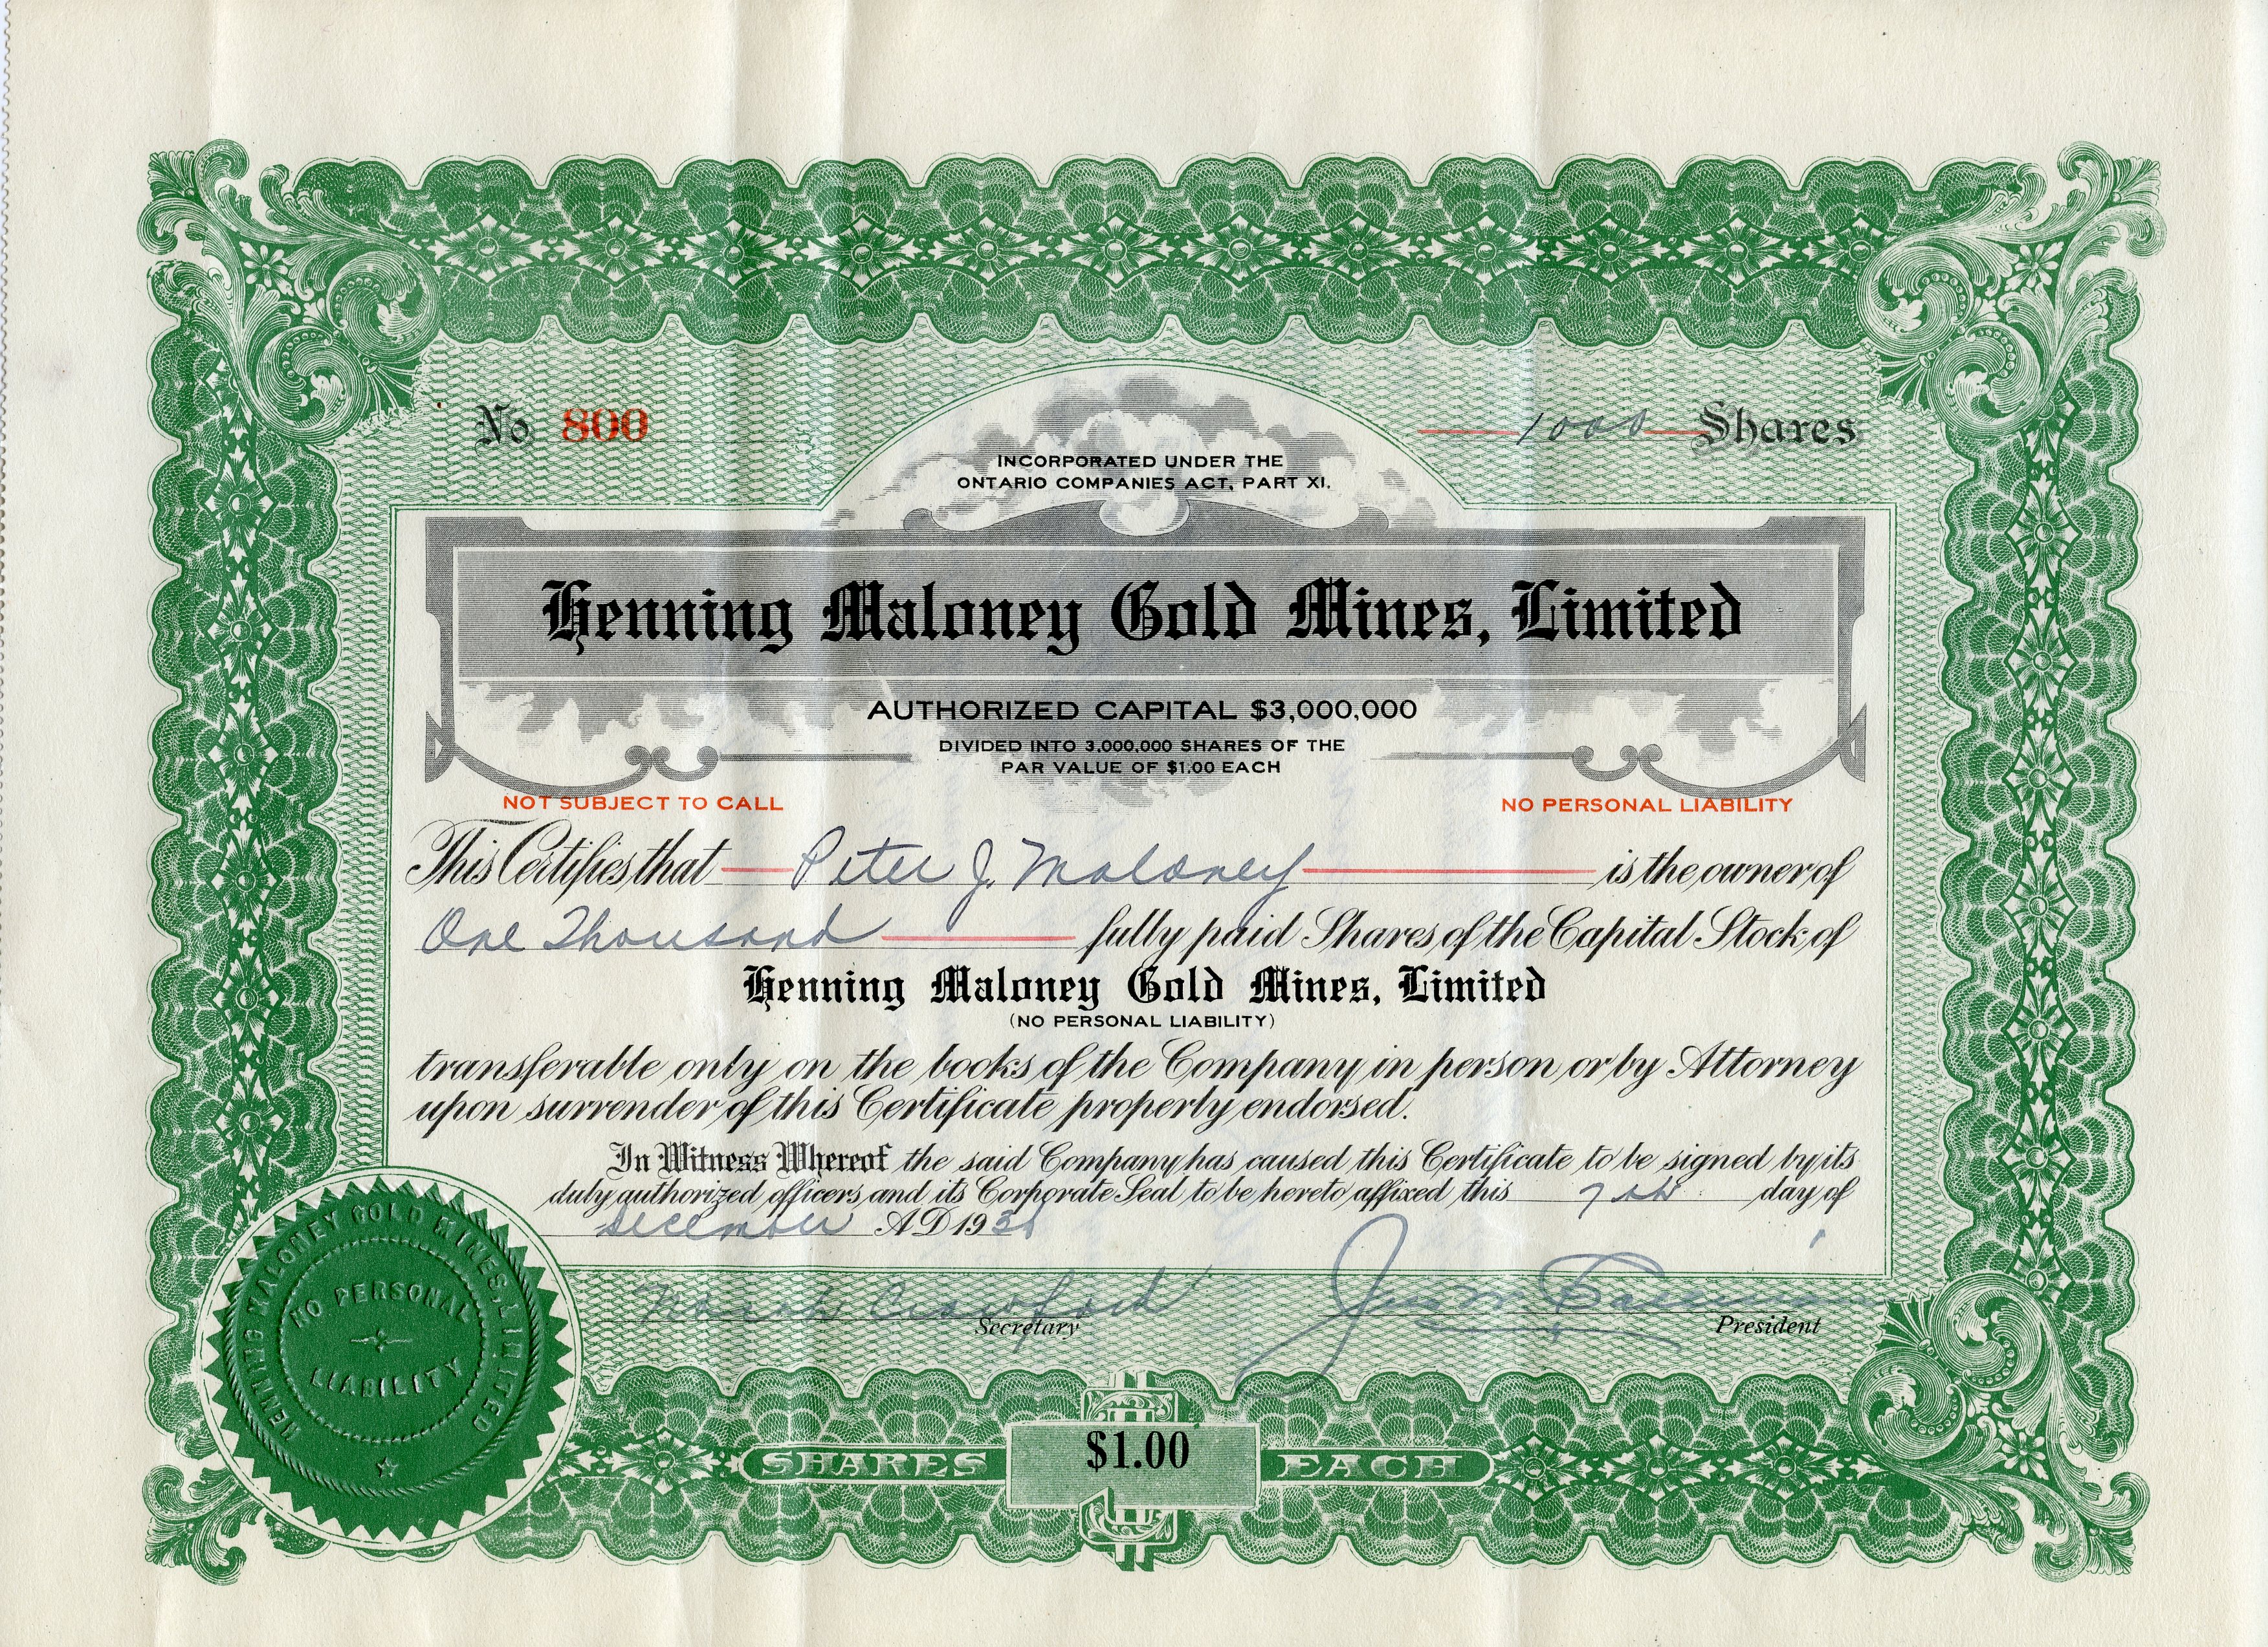 No 800
1000 Shares
INCORPORATED UNDER THE
ONTARIO COMPANIES ACT, PART XI.
Henning Maloney Gold Mines, Limited
AUTHORIZED CAPITAL $3,000,000
DIVIDED INTO 3,000,000 SHARES OF THE
PAR VALUE OF $1.00 EACH
NOT SUBJECT TO CALL
NO PERSONAL LIABILITY
This Certifies that Peter J. Maloney is the owner of
One Thousand fully paid Shares of the Capital Stock of
Henning Maloney Gold Mines, Limited
(NO PERSONAL LIABILITY)
transferable only on the books of the Company in person or by Attorney
upon surrender of this Certificate properly endorsed.
In Witness Whereof the said Company has caused this Certificate to be signed by its
duly authorized officers and its Corporate Seal to be hereto affixed this 7th day of
December A D 193
Norah Crawford
Secretary
President
HENNING MALONEY GOLD MINES, LIMITED
NO PERSONAL
LIABILITY
SHARES $1.00 EACH